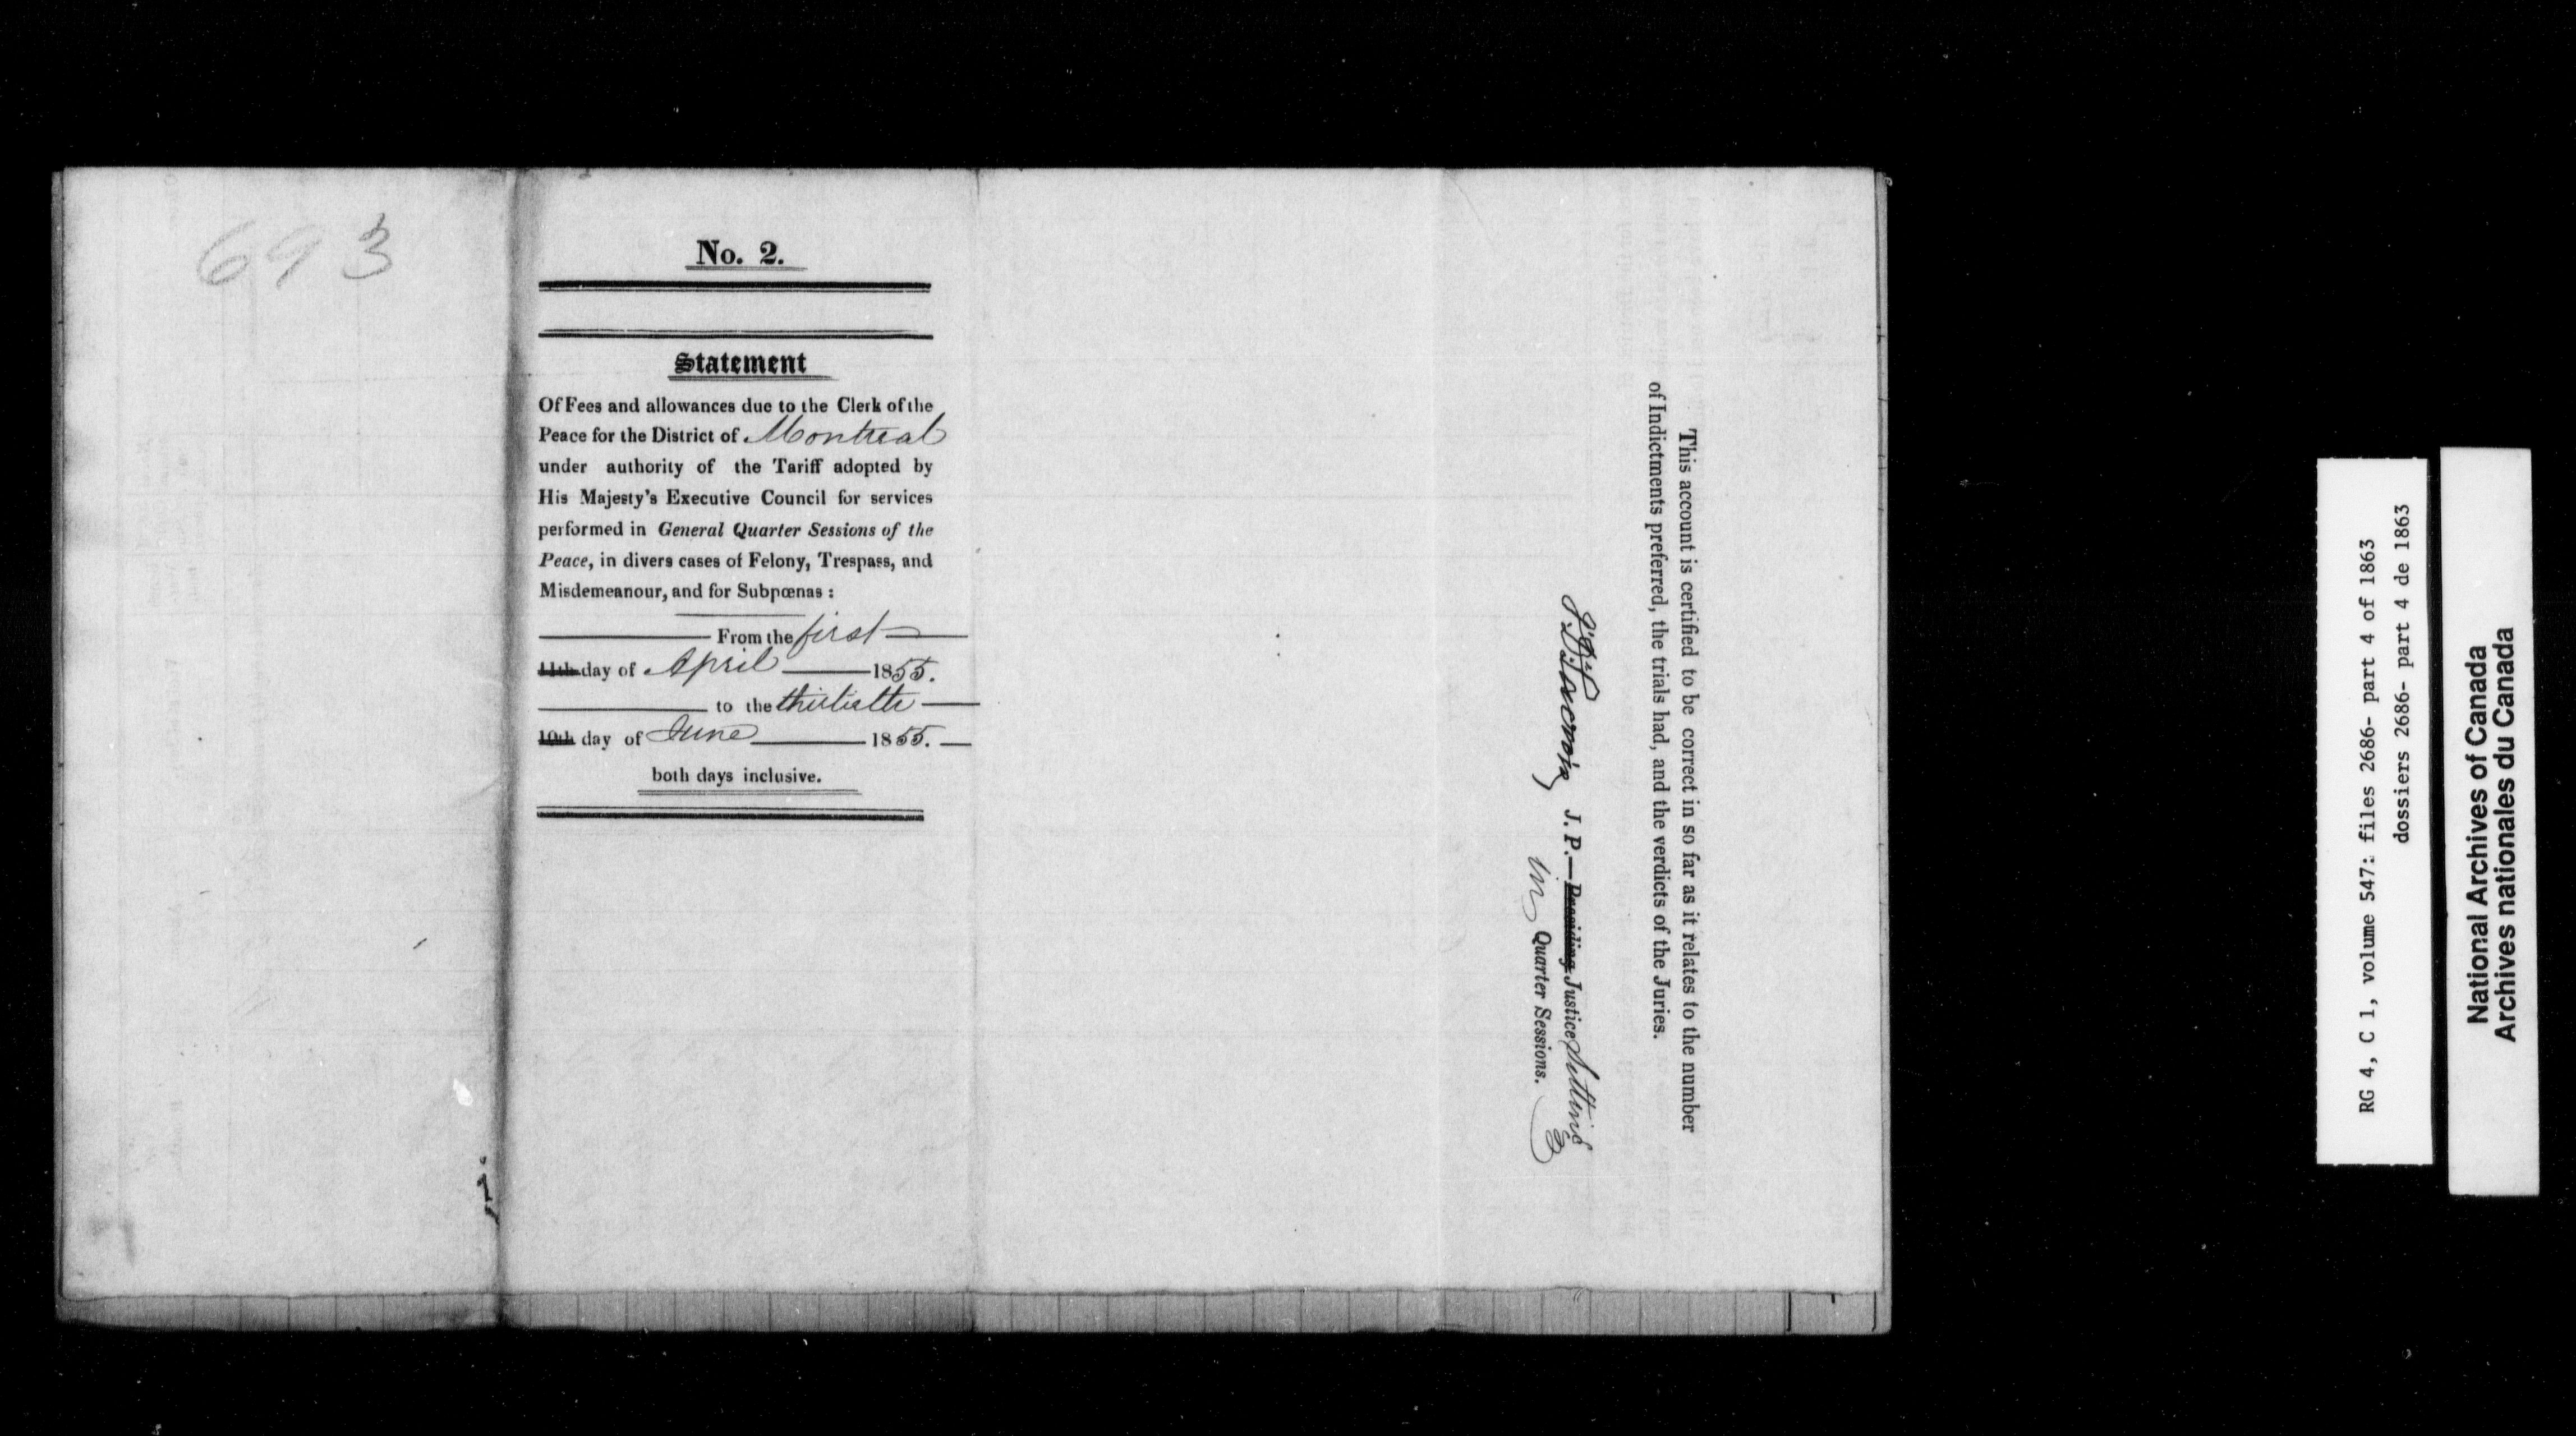 693
No. 2.
Statement
Of Fees and allowances due to the Clerk of the
Peace for the District of Montreal
under authority of the Tariff adopted by
His Majesty's Executive Council for services
performed in General Quarter Sessions of the
Peace, in divers cases of Felony, Trespass, and
Misdemeanour, and for Subpœnas :
From the first
11th day of April 1855.
to the thirtieth
10th day of June 1855.
both days inclusive.
This account is certified to be correct in so far as it relates to the number
of Indictments preferred, the trials had, and the verdicts of the Juries.
J. P.—Presiding Justice Sitting
in Quarter Sessions.
RG 4, C 1, volume 547: files 2686- part 4 of 1863
dossiers 2686- part 4 de 1863
National Archives of Canada
Archives nationales du Canada